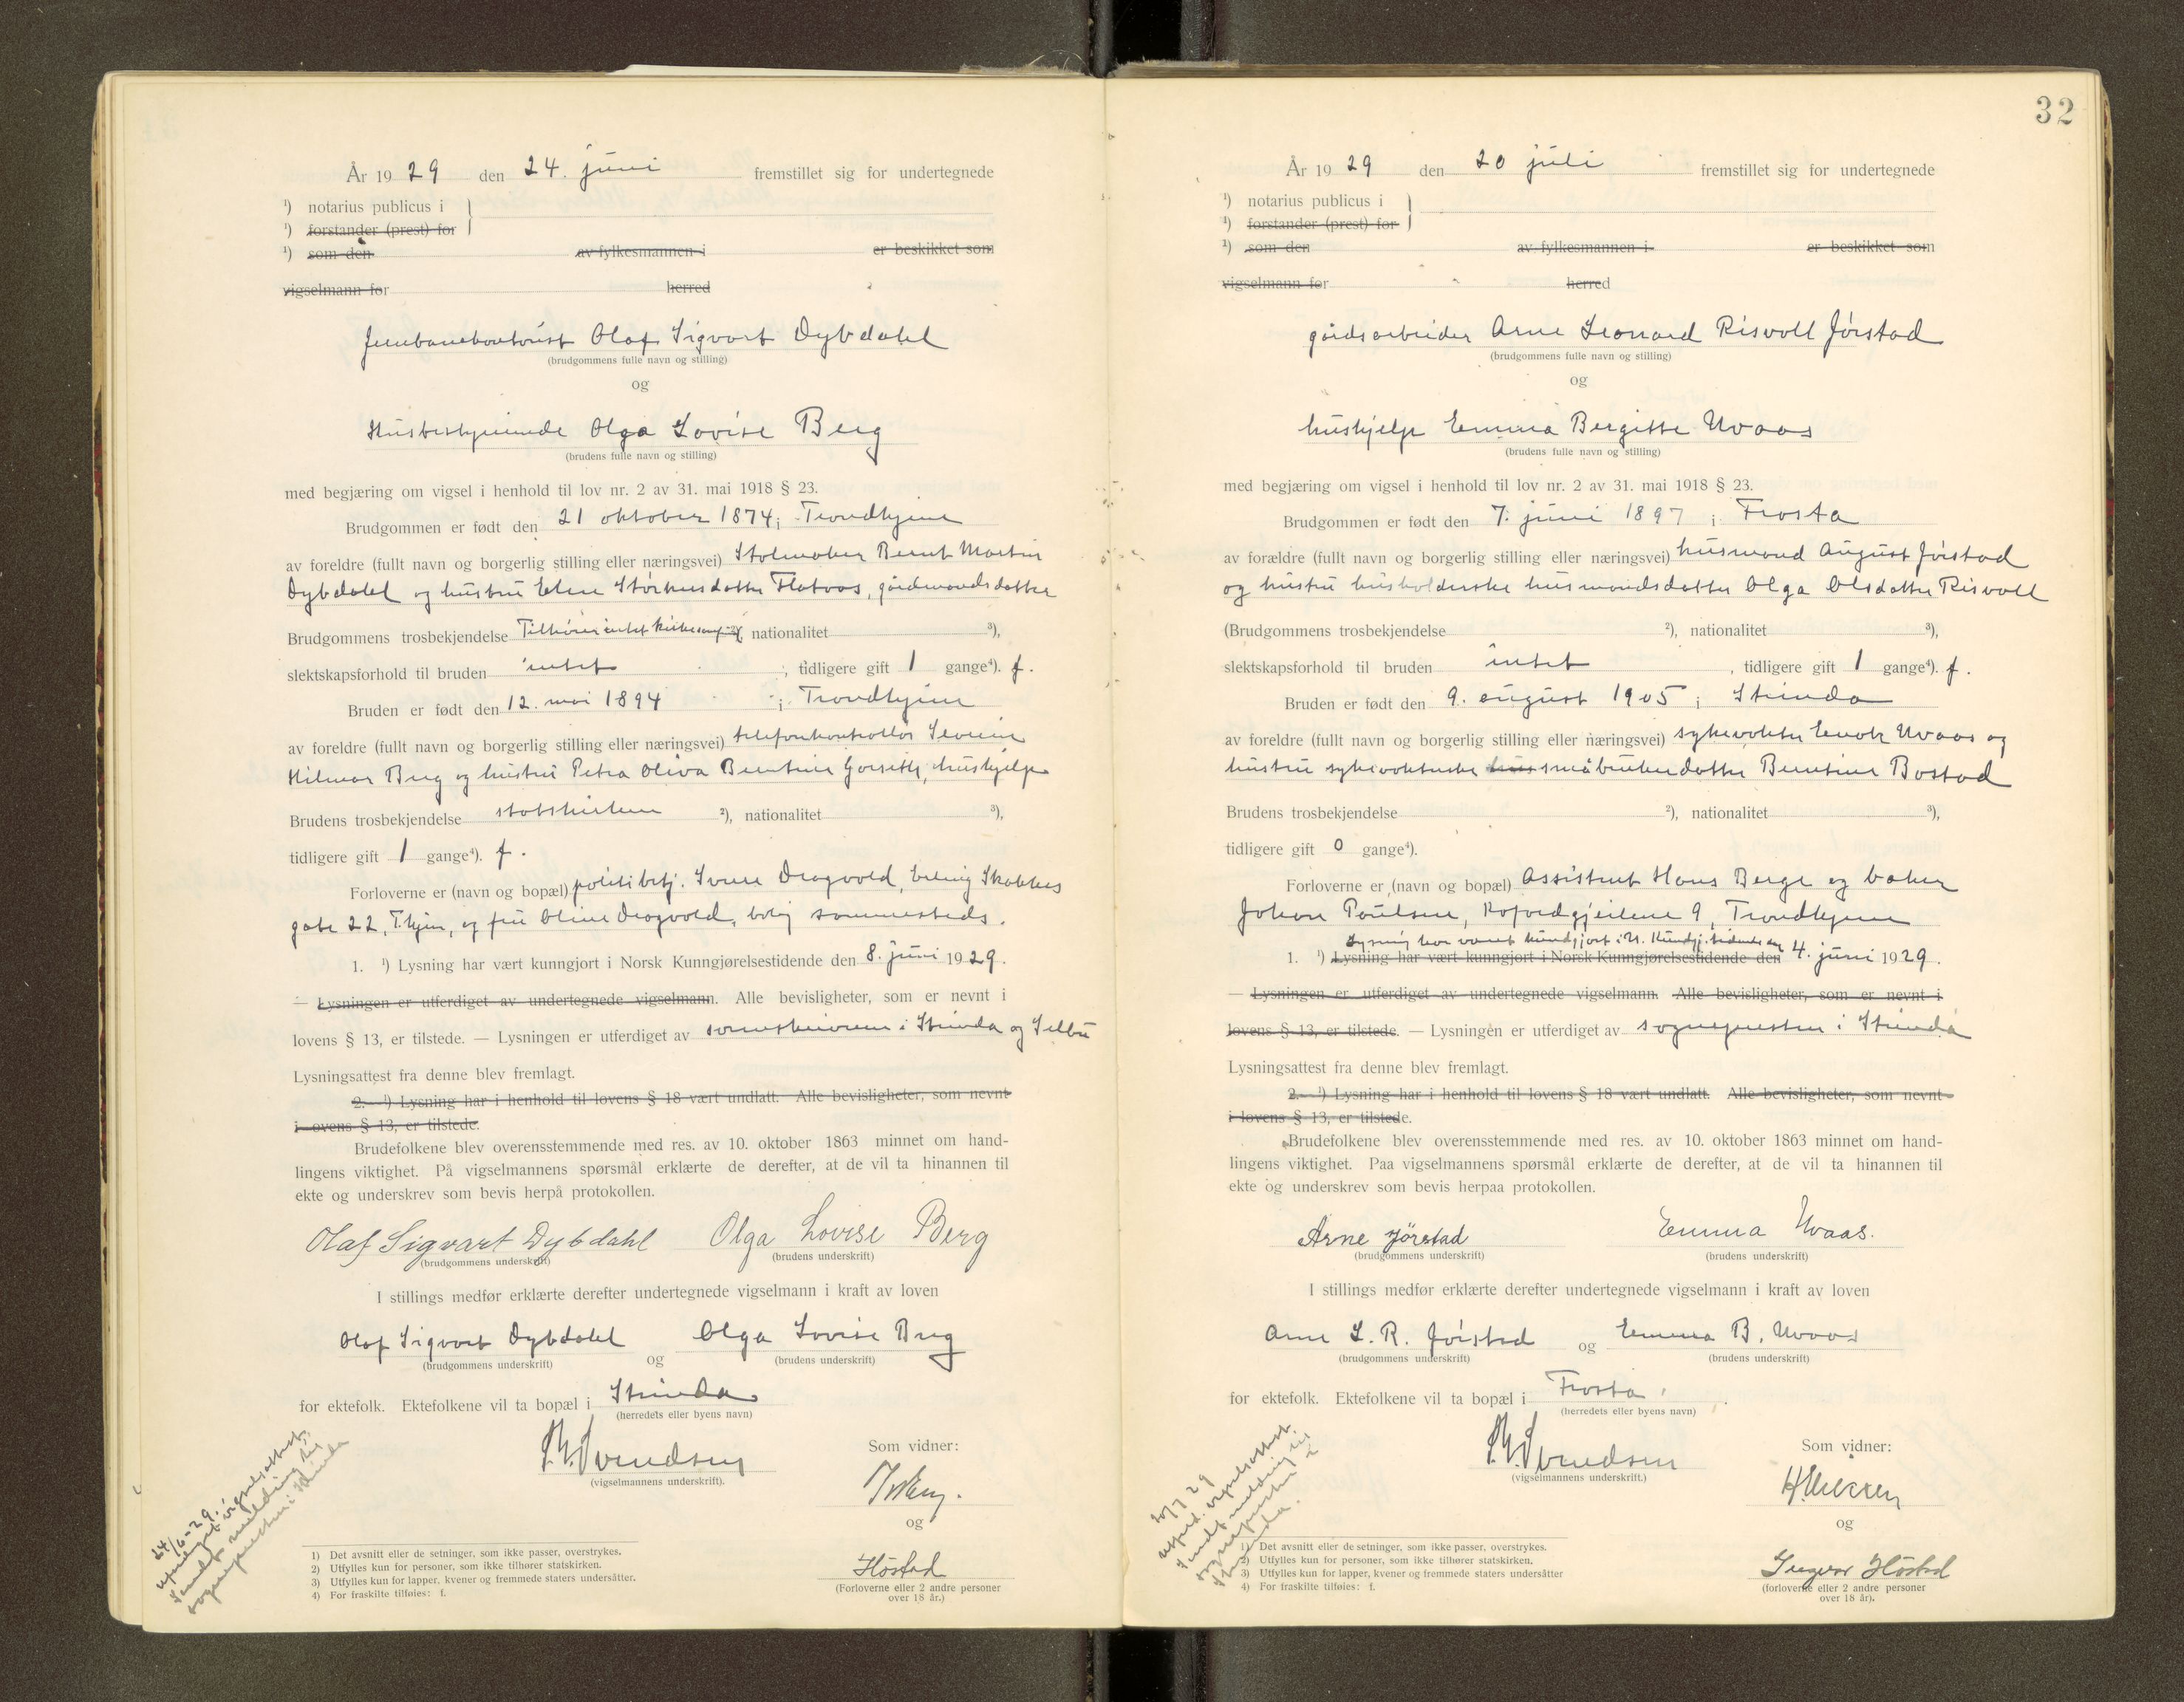 År 1929 den 24. juni fremstillet sig for undertegnede
¹) notarius publicus i
¹) forstander (prest) for
¹) som den av fylkesmannen i er beskikket som
vigselmann for herred
Olaf Sigvart Dybdahl
(brudgommens fulle navn og stilling)
og
Husbestyrerinde Olga Lovise Berg
(brudens fulle navn og stilling)
med begjæring om vigsel i henhold til lov nr. 2 av 31. mai 1918 § 23.
Brudgommen er født den 21 oktober 1874 i Trondhjem
av foreldre (fullt navn og borgerlig stilling eller næringsvei) Stolmaker Bernt Martin
Dybdahl og hustru Elen Størkersdatter Flataas, gårdmandsdatter
Brudgommens trosbekjendelse Tilhører intet kirkesamf. ²), nationalitet ³),
slektskapsforhold til bruden intet, tidligere gift 1 gange⁴). f.
Bruden er født den 12. mai 1894 i Trondhjem
av foreldre (fullt navn og borgerlig stilling eller næringsvei) telefonkontrollør Severin
Hilmar Berg og hustru Petra Oliva Berntine, hushjelp
Brudens trosbekjendelse statskirken ²), nationalitet ³),
tidligere gift 1 gange⁴). f.
Forloverne er (navn og bopæl) politibetj. Sverre Dragvold, Erling Skakkes
gate 22, T.hjem, og fru Oline Dragvold, bolig sammesteds.
1. ¹) Lysning har vært kunngjort i Norsk Kunngjørelsestidende den 8. juni 1929.
— Lysningen er utferdiget av undertegnede vigselmann. Alle bevisligheter, som er nevnt i
lovens § 13, er tilstede. — Lysningen er utferdiget av sorenskriveren i Strinda og Selbu
Lysningsattest fra denne blev fremlagt.
2. ¹) Lysning har i henhold til lovens § 18 vært undlatt. Alle bevisligheter, som nevnt
i lovens § 13, er tilstede.
Brudefolkene blev overensstemmende med res. av 10. oktober 1863 minnet om hand-
lingens viktighet. På vigselmannens spørsmål erklærte de derefter, at de vil ta hinannen til
ekte og underskrev som bevis herpå protokollen.
Olaf Sigvart Dybdahl Olga Lovise Berg
(brudgommens underskrift) (brudens underskrift)
I stillings medfør erklærte derefter undertegnede vigselmann i kraft av loven
Olaf Sigvart Dybdahl og Olga Lovise Berg
(brudgommens underskrift) (brudens underskrift)
for ektefolk. Ektefolkene vil ta bopæl i Strinda
(herredets eller byens navn)
Svendsen
(vigselmannens underskrift).
Som vidner:
og
Høstad
(Forloverne eller 2 andre personer
over 18 år.)
24/6-29. utferdiget vigselsattest.
Sendt melding til
sognepresten i Strinda
1) Det avsnitt eller de setninger, som ikke passer, overstrykes.
2) Utfylles kun for personer, som ikke tilhører statskirken.
3) Utfylles kun for lapper, kvener og fremmede staters undersåtter.
4) For fraskilte tilføies: f.
32
År 1929 den 20 juli fremstillet sig for undertegnede
¹) notarius publicus i
¹) forstander (prest) for
¹) som den av fylkesmannen i er beskikket som
vigselmann for herred
gårdsarbeider Arne Leonard Risvoll Jørstad
(brudgommens fulle navn og stilling)
og
hushjelp Emma Bergitte Uvaas
(brudens fulle navn og stilling)
med begjæring om vigsel i henhold til lov nr. 2 av 31. mai 1918 § 23.
Brudgommen er født den 7. juni 1897 i Frosta
av forældre (fullt navn og borgerlig stilling eller næringsvei) husmand August Jørstad
og hustru husholderske husmandsdatter Olga Olsdatter Risvoll
(Brudgommens trosbekjendelse ²), nationalitet ³),
slektskapsforhold til bruden intet, tidligere gift 1 gange⁴). f.
Bruden er født den 9. august 1905 i Strinda
av foreldre (fullt navn og borgerlig stilling eller næringsvei) sykevokter Enok Uvaas og
hustru sykevokterske hus småbrukerdatter Berntine Bostad
Brudens trosbekjendelse ²), nationalitet ³),
tidligere gift 0 gange⁴).
Forloverne er (navn og bopæl) Assistent Hans Berge og baker
Johan Poulsen, 9, Trondhjem
Lysning har været kundgjort i N. Kundgj.tidende den
1. ¹) Lysning har vært kunngjort i Norsk Kunngjørelsestidende den 4. juni 1929.
— Lysningen er utferdiget av undertegnede vigselmann. Alle bevisligheter, som er nevnt i
lovens § 13, er tilstede. — Lysningen er utferdiget av sognepresten i Strinda
Lysningsattest fra denne blev fremlagt.
2. ¹) Lysning har i henhold til lovens § 18 vært undlatt. Alle bevisligheter, som nevnt
i lovens § 13, er tilstede.
Brudefolkene blev overensstemmende med res. av 10. oktober 1863 minnet om hand-
lingens viktighet. Paa vigselmannens spørsmål erklærte de derefter, at de vil ta hinannen til
ekte og underskrev som bevis herpaa protokollen.
Arne Jørstad Emma Uvaas.
(brudgommens underskrift) (brudens underskrift)
I stillings medfør erklærte derefter undertegnede vigselmann i kraft av loven
Arne L. R. Jørstad og Emma B. Uvaas
(brudgommens underskrift) (brudens underskrift)
for ektefolk. Ektefolkene vil ta bopæl i Frosta.
(herredets eller byens navn)
Svendsen
(vigselmannens underskrift.)
Som vidner:
og
Ingvar Høstad
(forloverne eller 2 andre personer
over 18 år).
20/7 29
utferd. vigselsattest.
Sendt melding til
sognepresten i
Strinda.
1) Det avsnitt eller de setninger, som ikke passer, overstrykes.
2) Utfylles kun for personer, som ikke tilhører statskirken.
3) Utfylles kun for lapper, kvener og fremmede staters undersåtter
4) For fraskilte tilføies: f.